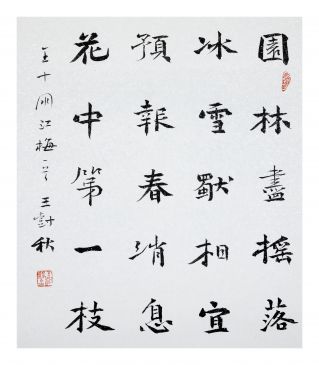 園林盡摇落
冰雪相宜
預報春消息
花中第一枝
王十朋江梅一首 王秋